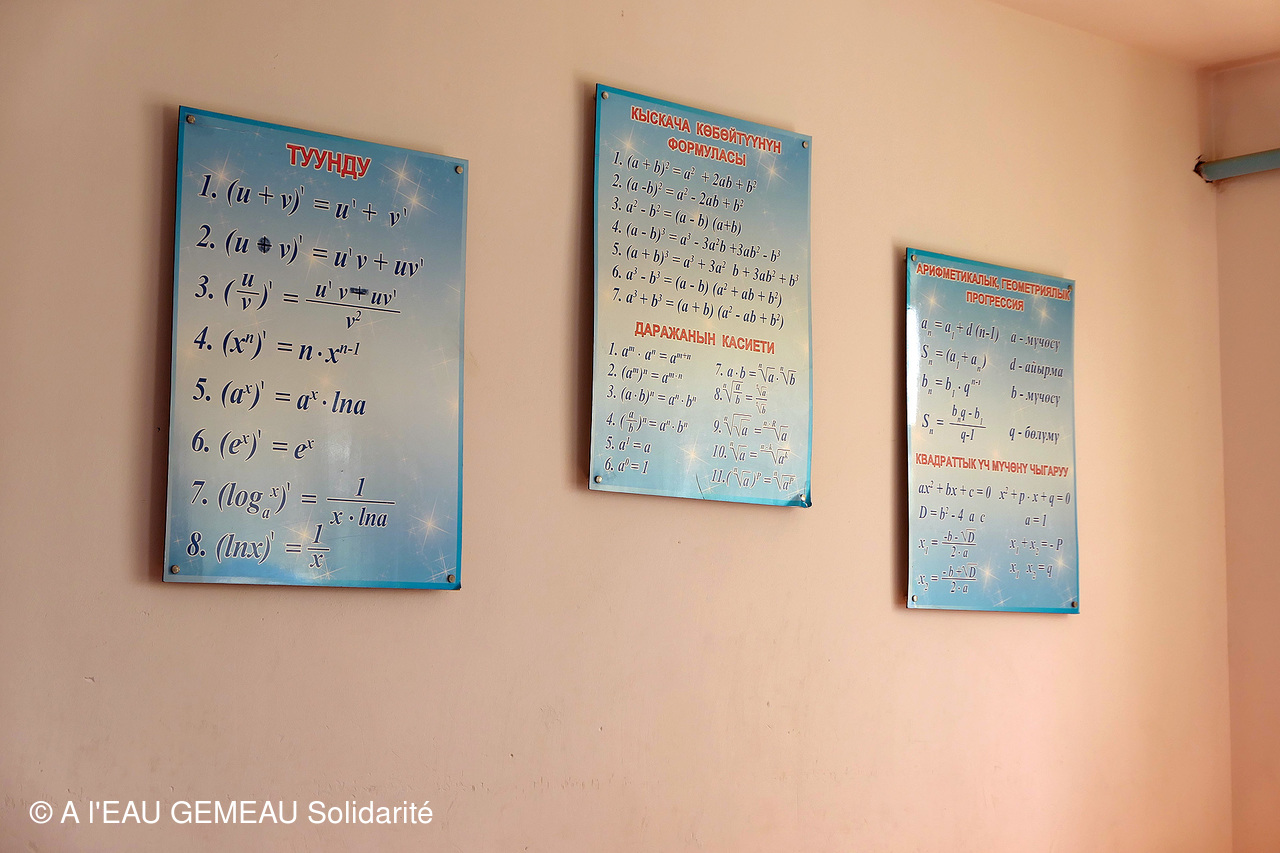 ТУУНДУ
1. (u + v)' = u' + v'
2. (u • v)' = u'v + uv'
3. (u/v)' = (u' v + uv')/v²
4. (xⁿ)' = n · xⁿ⁻¹
5. (aˣ)' = aˣ · lna
6. (eˣ)' = eˣ
7. (logₐ x)' = 1/(x · lna)
8. (lnx)' = 1/x
КЫСКАЧА КӨБӨЙТҮҮНҮН
ФОРМУЛАСЫ
1. (a + b)² = a² + 2ab + b²
2. (a -b)² = a² - 2ab + b²
3. a² - b² = (a - b) (a+b)
4. (a - b)³ = a³ - 3a²b +3ab² - b³
5. (a + b)³ = a³ + 3a² b + 3ab² + b³
6. a³ - b³ = (a - b) (a² + ab + b²)
7. a³ + b³ = (a + b) (a² - ab + b²)
ДАРАЖАНЫН КАСИЕТИ
1. aᵐ · aⁿ = aᵐ⁺ⁿ
2. (aᵐ)ⁿ = aᵐ·ⁿ
3. (a · b)ⁿ = aⁿ · bⁿ
4. (a/b)ⁿ = aⁿ · bⁿ
5. a¹ = a
6. a⁰ = 1
7. a · b = ⁿ√a · ⁿ√b
8. ⁿ√(a/b) = ⁿ√a/ⁿ√b
9. ⁿ√√a = ⁿ·ᴿ√a
10. ⁿ√a = ⁿ·ᵏ√aᵏ
11.(ⁿ√a)ᵖ = ⁿ√aᵖ
АРИФМЕТИКАЛЫК, ГЕОМЕТРИЯЛЫК
ПРОГРЕССИЯ
aₙ = a₁ + d (n-1) a - мүчөсү
Sₙ = (a₁ + aₙ) d - айырма
bₙ = b₁ · qⁿ⁻¹ b - мүчөсү
Sₙ = (bₙq - b₁)/(q-1) q - бөлүмү
КВАДРАТТЫК ҮЧ МҮЧӨНҮ ЧЫГАРУУ
ax² + bx + c = 0 x² + p · x + q = 0
D = b² - 4 a c a = 1
x₁ = (-b - √D)/(2 · a) x₁ + x₂ = - P
x₂ = (- b +√D)/(2 · a) x₁ x₂ = q
© A l'EAU GEMEAU Solidarité